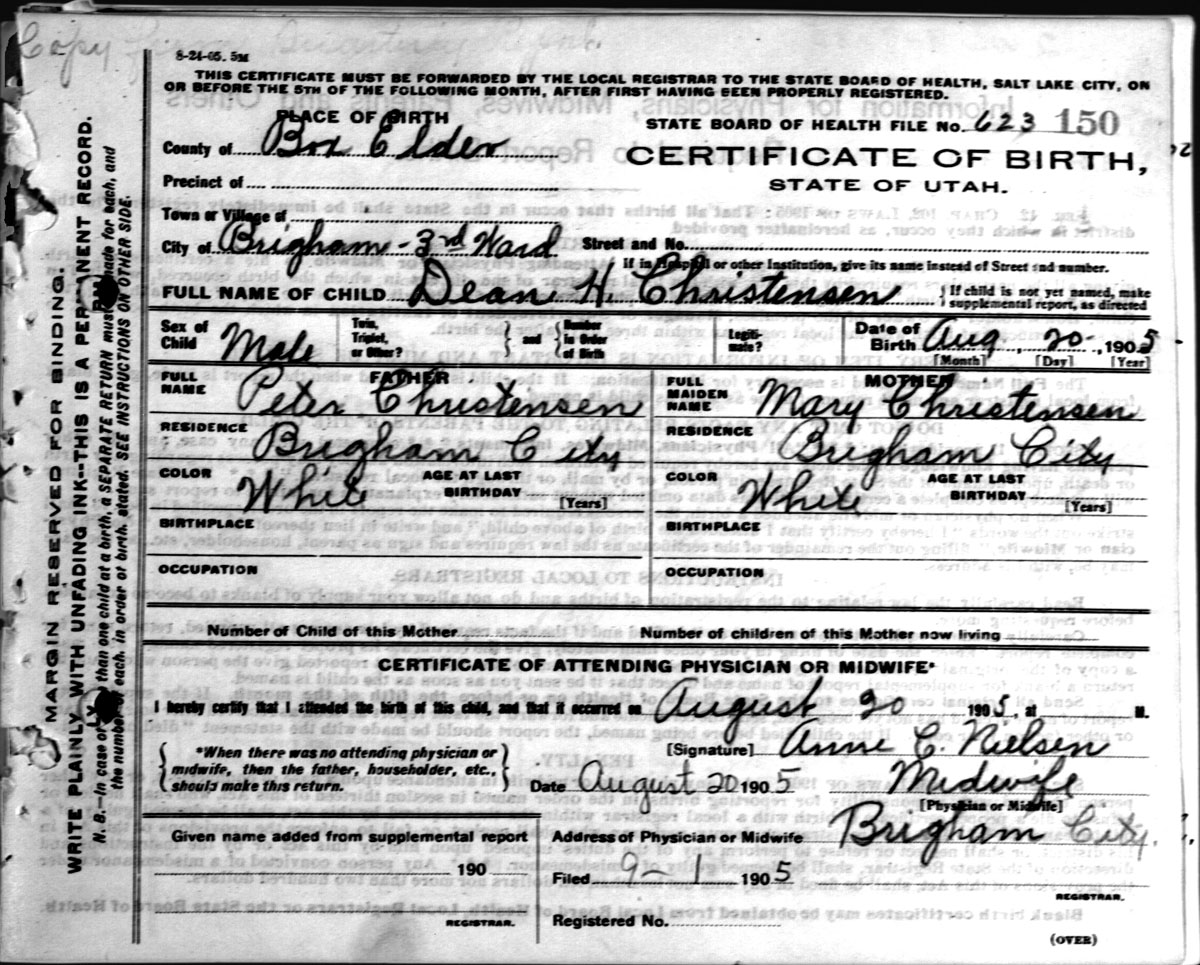 Copy
8-24-05. 5M
THIS CERTIFICATE MUST BE FORWARDED BY THE LOCAL REGISTRAR TO THE STATE BOARD OF HEALTH, SALT LAKE CITY, ON
OR BEFORE THE 5TH OF THE FOLLOWING MONTH, AFTER FIRST HAVING BEEN PROPERLY REGISTERED.
PLACE OF BIRTH
STATE BOARD OF HEALTH FILE No. 623 150
County of Box Elder
CERTIFICATE OF BIRTH,
STATE OF UTAH.
Precinct of
Town or Village of
City of Brigham - 3rd Ward Street and No.
If in Hospital or other Institution, give its name instead of Street and number.
FULL NAME OF CHILD Dean H. Christensen } If child is not yet named, make
supplemental report, as directed
Sex of Child Male
Twin, Triplet, or Other? { and } Number in Order of Birth
Legiti- mate?
Date of Birth Aug, 20, 1905
[Month] [Day] [Year]
FATHER
FULL NAME Peter Christensen
MOTHER
FULL MAIDEN NAME Mary Christensen
RESIDENCE Brigham City
RESIDENCE Brigham City
COLOR White AGE AT LAST BIRTHDAY [Years]
COLOR White AGE AT LAST BIRTHDAY [Years]
BIRTHPLACE
BIRTHPLACE
OCCUPATION
OCCUPATION
Number of Child of this Mother
Number of children of this Mother now living
CERTIFICATE OF ATTENDING PHYSICIAN OR MIDWIFE*
I hereby certify that I attended the birth of this child, and that it occurred on August 20 1905, at M.
{ *When there was no attending physician or
midwife, then the father, householder, etc.,
should make this return. }
[Signature] Anne C. Nielsen
Date August 20 1905 Midwife
[Physician or Midwife]
Given name added from supplemental report
190
REGISTRAR.
Address of Physician or Midwife Brigham City.
Filed 9-1 1905
REGISTRAR.
Registered No.
(OVER)
MARGIN RESERVED FOR BINDING.
WRITE PLAINLY WITH UNFADING INK--THIS IS A PERMANENT RECORD.
N. B.--In case of more than one child at birth, a SEPARATE RETURN must be made for each, and
the number of each, in order of birth, stated. SEE INSTRUCTIONS ON OTHER SIDE.